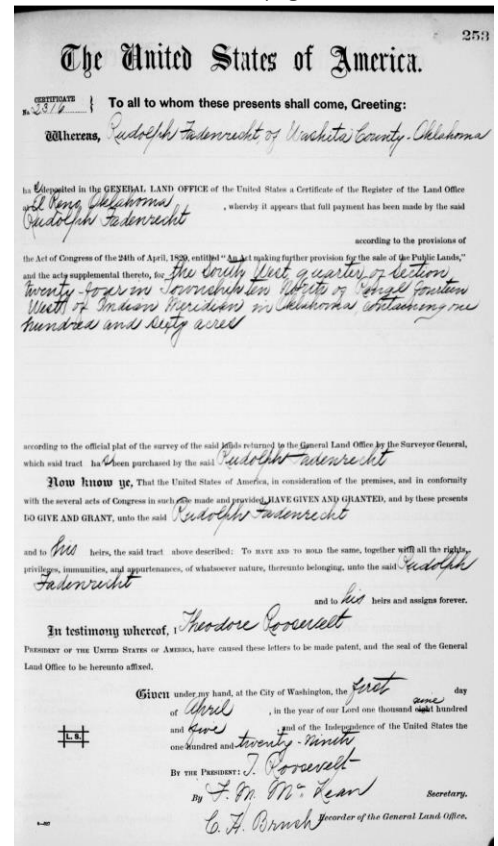 253
The United States of America.
CERTIFICATE
No. 2316 } To all to whom these presents shall come, Greeting:
Whereas, Rudolph Fadenrecht, of Washita County, Oklahoma
ha s deposited in the GENERAL LAND OFFICE of the United States a Certificate of the Register of the Land Office
at El Reno, Oklahoma , whereby it appears that full payment has been made by the said
Rudolph Fadenrecht
according to the provisions of
the Act of Congress of the 24th of April, 1820, entitled "An Act making further provision for the sale of the Public Lands,"
and the acts supplemental thereto, for the South West quarter of Section
twenty-four in Township ten North of Range fourteen
West of Indian Meridian in Oklahoma, containing one
hundred and sixty acres
according to the official plat of the survey of the said lands returned to the General Land Office by the Surveyor General,
which said tract ha s been purchased by the said Rudolph Fadenrecht
Now know ye, That the United States of America, in consideration of the premises, and in conformity
with the several acts of Congress in such case made and provided, HAVE GIVEN AND GRANTED, and by these presents
DO GIVE AND GRANT, unto the said Rudolph Fadenrecht
and to his heirs, the said tract above described: TO HAVE AND TO HOLD the same, together with all the rights,
privileges, immunities, and appurtenances, of whatsoever nature, thereunto belonging, unto the said Rudolph
Fadenrecht
and to his heirs and assigns forever.
In testimony whereof, I Theodore Roosevelt
PRESIDENT OF THE UNITED STATES OF AMERICA, have caused these letters to be made patent, and the seal of the General
Land Office to be hereunto affixed.
Given under my hand, at the City of Washington, the first day
of April , in the year of our Lord one thousand eight nine hundred
and five , and of the Independence of the United States the
one hundred and twenty-ninth
L. S.
BY THE PRESIDENT: T. Roosevelt
By F. M. McKean Secretary.
C. H. Brush Recorder of the General Land Office.